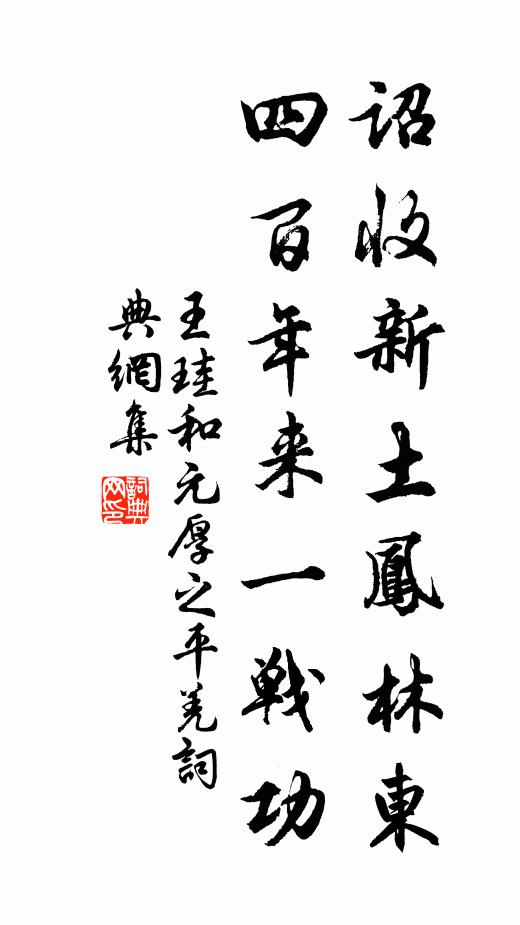 詔收新土鳳林東
四百年来一戰功
王珪和元厚之平羌詞
典網集
詞典網印